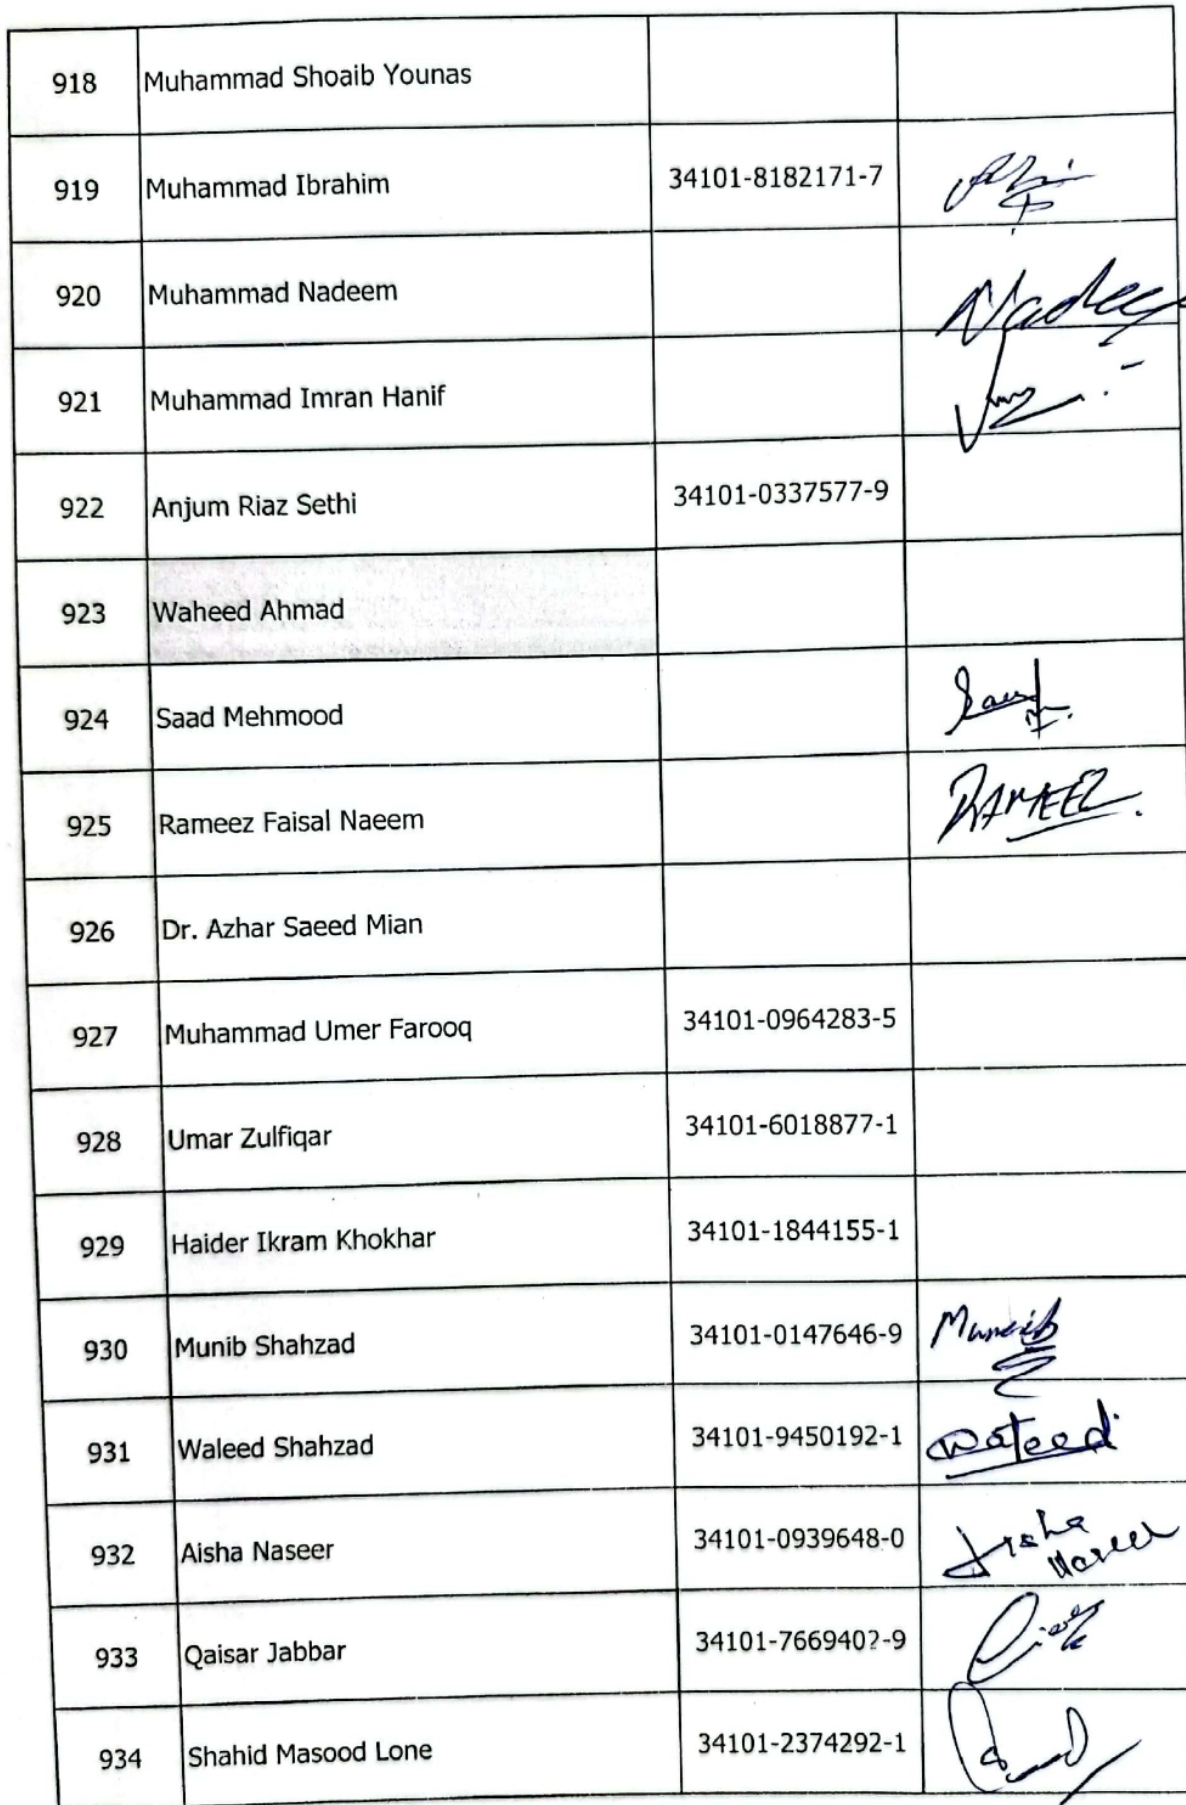 918 Muhammad Shoaib Younas
919 Muhammad Ibrahim 34101-8182171-7
920 Muhammad Nadeem Nadeem
921 Muhammad Imran Hanif
922 Anjum Riaz Sethi 34101-0337577-9
923 Waheed Ahmad
924 Saad Mehmood
925 Rameez Faisal Naeem RAMEEZ.
926 Dr. Azhar Saeed Mian
927 Muhammad Umer Farooq 34101-0964283-5
928 Umar Zulfiqar 34101-6018877-1
929 Haider Ikram Khokhar 34101-1844155-1
930 Munib Shahzad 34101-0147646-9
931 Waleed Shahzad 34101-9450192-1 Waleed
932 Aisha Naseer 34101-0939648-0 Aisha
Naseer
933 Qaisar Jabbar 34101-766940?-9
934 Shahid Masood Lone 34101-2374292-1